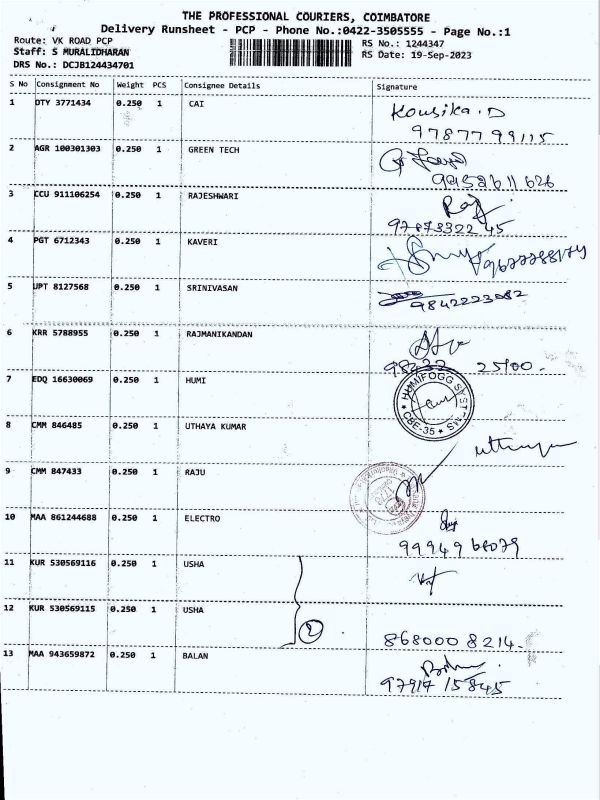 THE PROFESSIONAL COURIERS, COIMBATORE
Delivery Runsheet - PCP - Phone No.:0422-3505555 - Page No.:1
Route: VK ROAD PCP RS No.: 1244347
Staff: S MURALIDHARAN RS Date: 19-Sep-2023
DRS No.: DCJB124434701
S No Consignment No Weight PCS Consignee Details Signature
1 OTY 3771434 0.250 1 CAI Kousika.D
97877 99115
2 AGR 100301303 0.250 1 GREEN TECH
99526 11 626
3 CCU 911106254 0.250 1 RAJESHWARI Raj
97873322 45
4 PGT 6712343 0.250 1 KAVERI
5 UPT 8127568 0.250 1 SRINIVASAN
9842223082
6 KRR 5788955 0.250 1 RAJMANIKANDAN
98432 25900.
7 EDQ 16630069 0.250 1 HUMI HUMIFOGG SYSTEMS
CBE-35
8 CMM 846485 0.250 1 UTHAYA KUMAR
9 CMM 847433 0.250 1 RAJU
10 MAA 861244688 0.250 1 ELECTRO
99949 68079
11 KUR 530569116 0.250 1 USHA
12 KUR 530569115 0.250 1 USHA 2
868000 8214.
13 MAA 943659872 0.250 1 BALAN
97917 15845